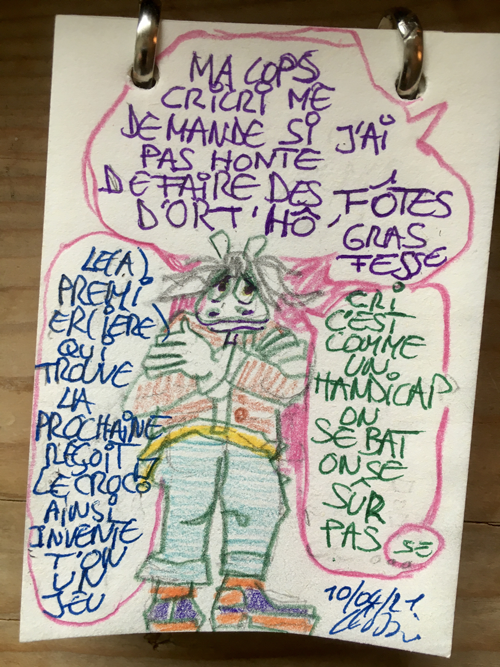 MA COPS
CRICRI ME
DEMANDE SI J'AI
PAS HONTE
DE FAIRE DES FÔTES
D'ORT'HÔ, GRAS
FESSE
LE(A)
PREMI
ER(IÈRE)
QUI
TROUVE
LA
PROCHAINE
REÇOIT
LE CROCO
AINSI
INVENTE
T'ON
UN
JEU
CRI
C'EST
COMME
UN
HANDICAP
ON
SE BAT
ON SE
SÛR
PAS SE
10/04/21